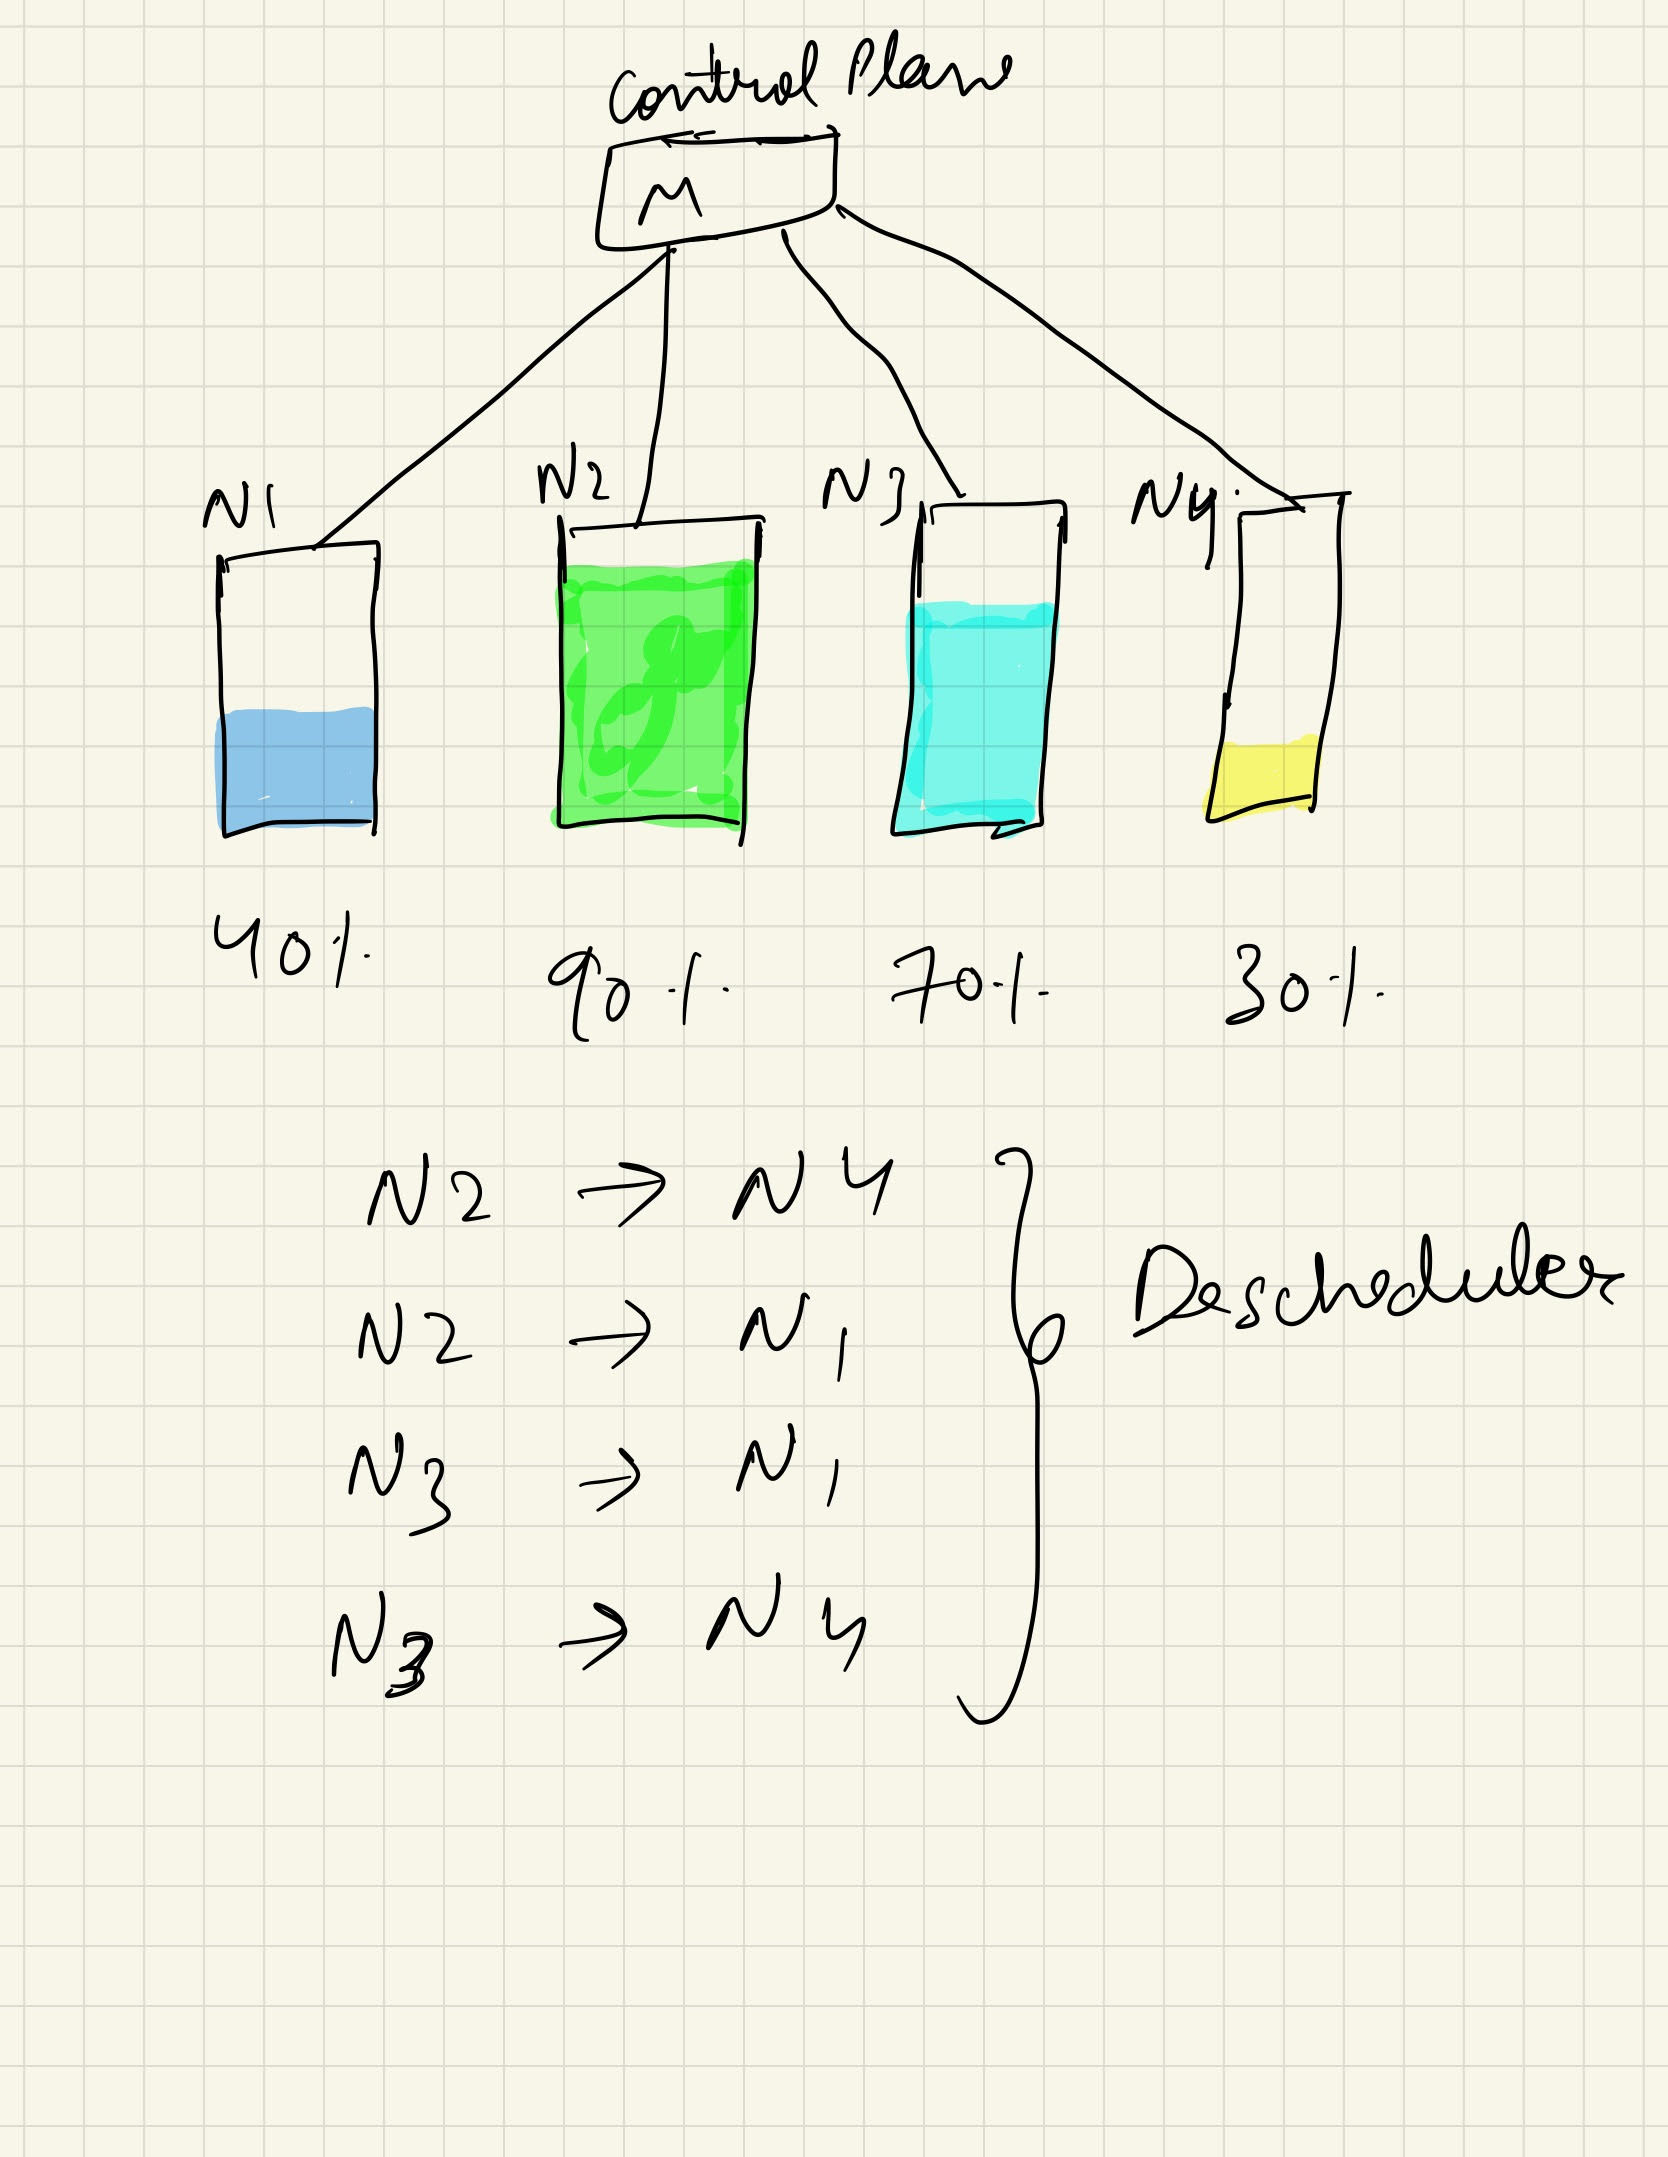 Control Plane
M
N1 N2 N3 N4
40% 90% 70% 30%
N2 → N4
N2 → N1
N3 → N1
N3 → N4
Descheduler